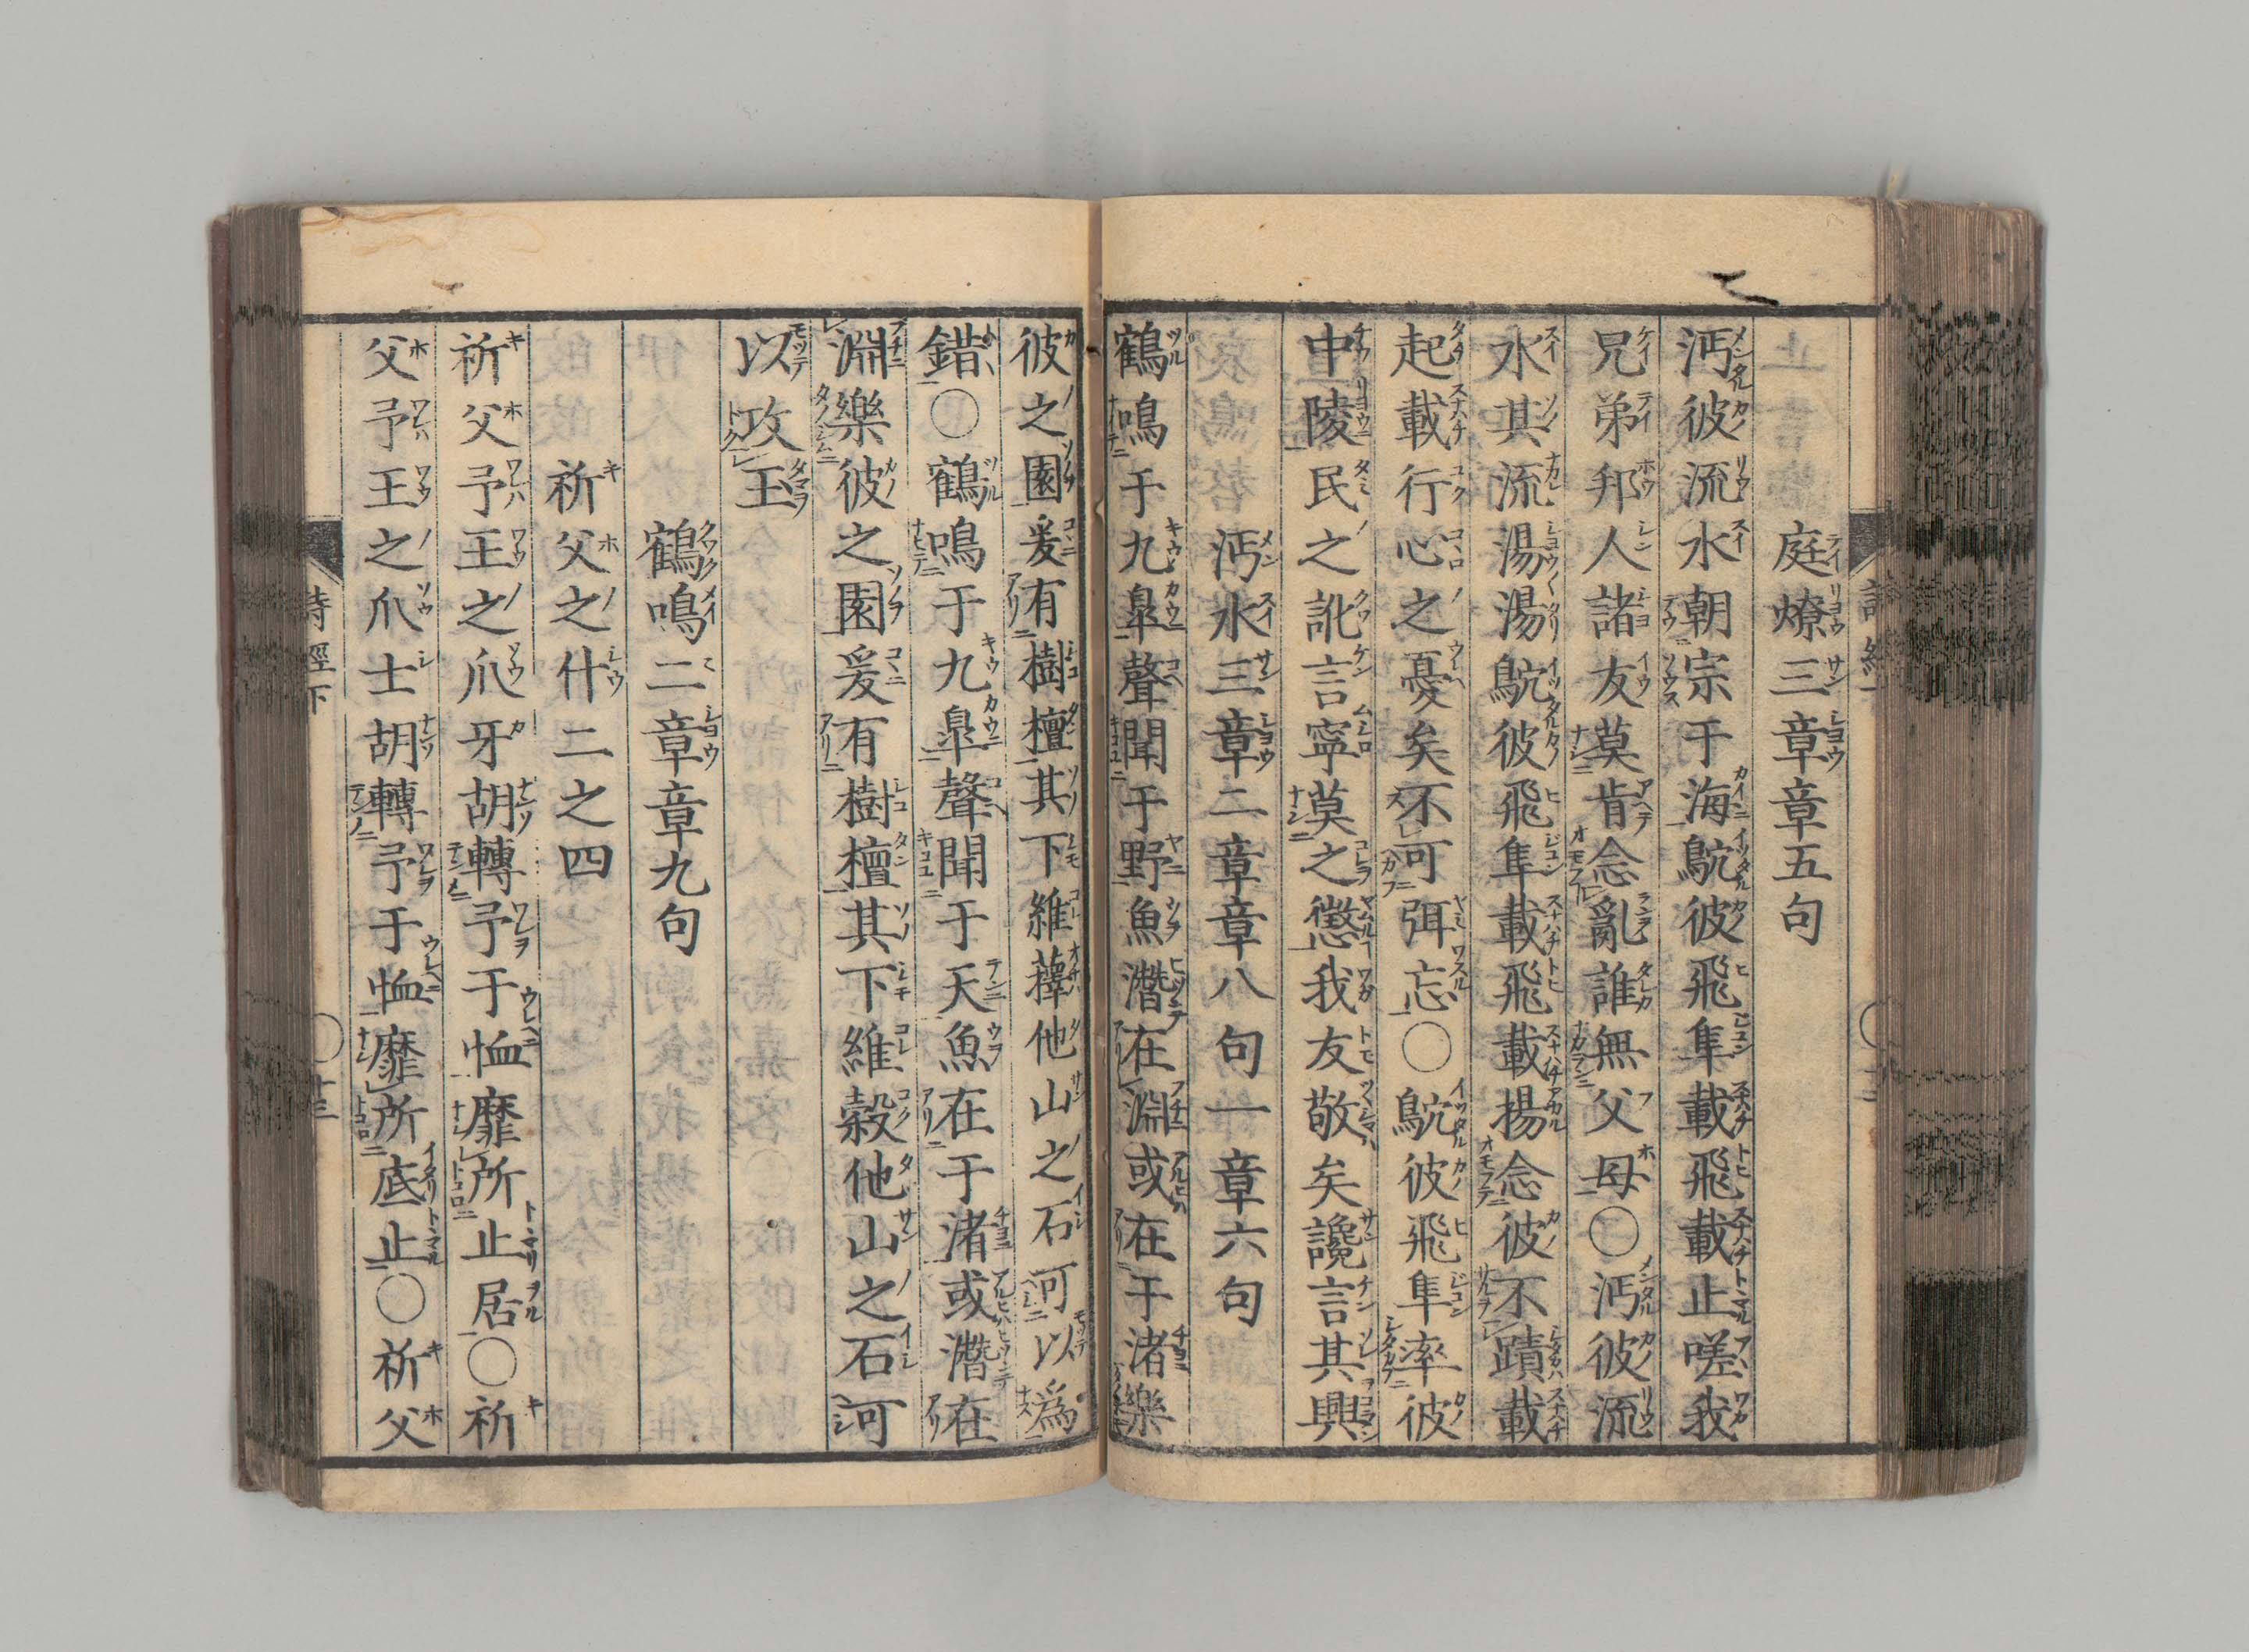 庭燎三章章五句
沔彼流水朝宗于海鴥彼飛隼載飛載止嗟我
兄弟邦人諸友莫肯念亂誰無父母〇沔彼流
水其流湯湯鴥彼飛隼載飛載揚念彼不蹟載
起載行心之憂矣不可弭忘〇鴥彼飛隼率彼
中陵民之訛言寧莫之懲我友敬矣讒言其興
沔水三章二章章八句一章六句
鶴鳴于九皐聲聞于野魚潛在淵或在于渚樂
彼之園爰有樹檀其下維蘀他山之石可以爲
錯〇鶴鳴于九皐聲聞于天魚在于渚或潛在
淵樂彼之園爰有樹檀其下維穀他山之石可
以攻玉
鶴鳴二章章九句
祈父之什二之四
祈父予王之爪牙胡轉予于恤靡所止居〇祈
父予王之爪士胡轉予于恤靡所底止〇祈父
詩經下
十三